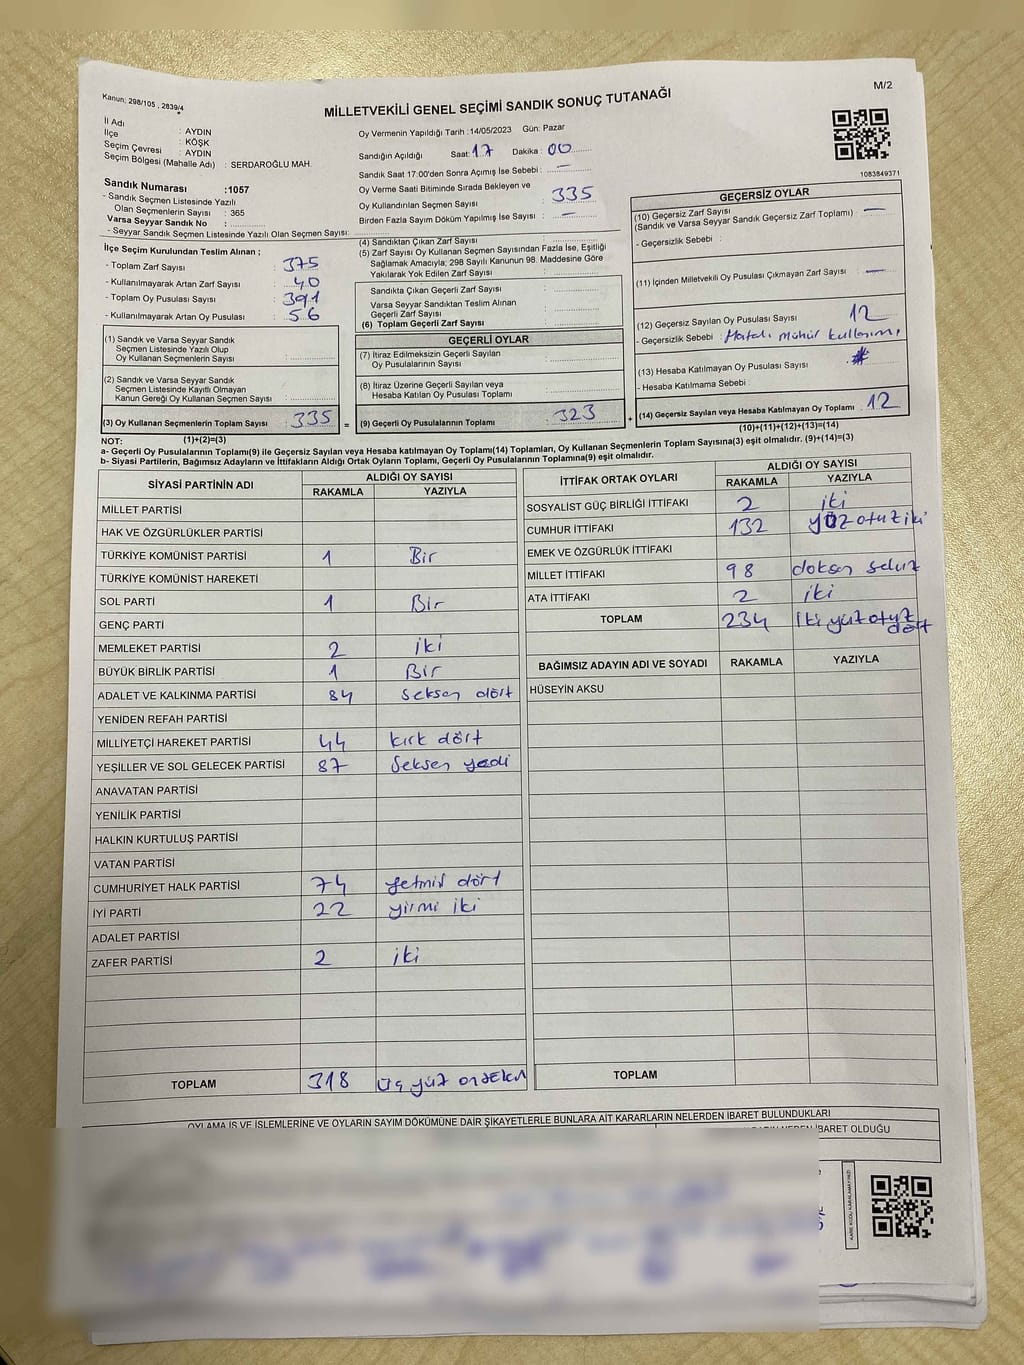 Kanun; 298/105 , 2839/4
MİLLETVEKİLİ GENEL SEÇİMİ SANDIK SONUÇ TUTANAĞI
M/2
İl Adı : AYDIN
İlçe : KÖŞK
Seçim Çevresi : AYDIN
Seçim Bölgesi (Mahalle Adı) : SERDAROĞLU MAH.
Sandık Numarası :1057
- Sandık Seçmen Listesinde Yazılı
Olan Seçmenlerin Sayısı : 365
Varsa Seyyar Sandık No :
- Seyyar Sandık Seçmen Listesinde Yazılı Olan Seçmen Sayısı:
Oy Vermenin Yapıldığı Tarih :14/05/2023 Gün: Pazar
Sandığın Açıldığı Saat: 17 Dakika : 00
Sandık Saat 17:00'den Sonra Açımış İse Sebebi : —
Oy Verme Saati Bitiminde Sırada Bekleyen ve
Oy Kullandırılan Seçmen Sayısı : 335
Birden Fazla Sayım Döküm Yapılmış İse Sayısı : —
1083849371
İlçe Seçim Kurulundan Teslim Alınan ;
- Toplam Zarf Sayısı : 375
- Kullanılmayarak Artan Zarf Sayısı : 40
- Toplam Oy Pusulası Sayısı : 391
- Kullanılmayarak Artan Oy Pusulası : 56
(1) Sandık ve Varsa Seyyar Sandık
Seçmen Listesinde Yazılı Olup
Oy Kullanan Seçmenlerin Sayısı :
(2) Sandık ve Varsa Seyyar Sandık
Seçmen Listesinde Kayıtlı Olmayan
Kanun Gereği Oy Kullanan Seçmen Sayısı :
(3) Oy Kullanan Seçmenlerin Toplam Sayısı : 335
(1)+(2)=(3)
(4) Sandıktan Çıkan Zarf Sayısı :
(5) Zarf Sayısı Oy Kullanan Seçmen Sayısından Fazla İse, Eşitliği
Sağlamak Amacıyla; 298 Sayılı Kanunun 98. Maddesine Göre
Yakılarak Yok Edilen Zarf Sayısı :
Sandıkta Çıkan Geçerli Zarf Sayısı :
Varsa Seyyar Sandıktan Teslim Alınan
Geçerli Zarf Sayısı :
(6) Toplam Geçerli Zarf Sayısı :
GEÇERLİ OYLAR
(7) İtiraz Edilmeksizin Geçerli Sayılan
Oy Pusulasının Sayısı :
(8) İtiraz Üzerine Geçerli Sayılan veya
Hesaba Katılan Oy Pusulası Toplamı :
= (9) Geçerli Oy Pusulalarının Toplamı : 323 +
GEÇERSİZ OYLAR
(10) Geçersiz Zarf Sayısı : —
(Sandık ve Varsa Seyyar Sandık Geçersiz Zarf Toplamı)
- Geçersizlik Sebebi :
(11) İçinden Milletvekili Oy Pusulası Çıkmayan Zarf Sayısı : —
(12) Geçersiz Sayılan Oy Pusulası Sayısı : 12
- Geçersizlik Sebebi : Hatalı mühür kullanımı
(13) Hesaba Katılmayan Oy Pusulası Sayısı :
- Hesaba Katılmama Sebebi :
(14) Geçersiz Sayılan veya Hesaba Katılmayan Oy Toplamı : 12
(10)+(11)+(12)+(13)=(14)
NOT:
a- Geçerli Oy Pusulalarının Toplamı(9) ile Geçersiz Sayılan veya Hesaba katılmayan Oy Toplamı(14) Toplamları, Oy Kullanan Seçmenlerin Toplam Sayısına(3) eşit olmalıdır. (9)+(14)=(3)
b- Siyasi Partilerin, Bağımsız Adayların ve İttifakların Aldığı Ortak Oyların Toplamı, Geçerli Oy Pusulalarının Toplamına(9) eşit olmalıdır.
SİYASİ PARTİNİN ADI ALDIĞI OY SAYISI
RAKAMLA YAZIYLA
MİLLET PARTİSİ
HAK VE ÖZGÜRLÜKLER PARTİSİ
TÜRKİYE KOMÜNİST PARTİSİ 1 Bir
TÜRKİYE KOMÜNİST HAREKETİ
SOL PARTİ 1 Bir
GENÇ PARTİ
MEMLEKET PARTİSİ 2 iki
BÜYÜK BİRLİK PARTİSİ 1 Bir
ADALET VE KALKINMA PARTİSİ 84 seksen dört
YENİDEN REFAH PARTİSİ
MİLLİYETÇİ HAREKET PARTİSİ 44 kırk dört
YEŞİLLER VE SOL GELECEK PARTİSİ 87 seksen yedi
ANAVATAN PARTİSİ
YENİLİK PARTİSİ
HALKIN KURTULUŞ PARTİSİ
VATAN PARTİSİ
CUMHURİYET HALK PARTİSİ 74 yetmiş dört
İYİ PARTİ 22 yirmi iki
ADALET PARTİSİ
ZAFER PARTİSİ 2 iki
TOPLAM 318 üç yüz onsekiz
İTTİFAK ORTAK OYLARI ALDIĞI OY SAYISI
RAKAMLA YAZIYLA
SOSYALİST GÜÇ BİRLİĞİ İTTİFAKI 2 iki
CUMHUR İTTİFAKI 132 yüz otuz iki
EMEK VE ÖZGÜRLÜK İTTİFAKI
MİLLET İTTİFAKI 98 doksan sekiz
ATA İTTİFAKI 2 iki
TOPLAM 234 iki yüz otuz
dört
BAĞIMSIZ ADAYIN ADI VE SOYADI RAKAMLA YAZIYLA
HÜSEYİN AKSU
TOPLAM
OYLAMA İŞ VE İŞLEMLERİNE VE OYLARIN SAYIM DÖKÜMÜNE DAİR ŞİKAYETLERLE BUNLARA AİT KARARLARIN NELERDEN İBARET BULUNDUKLARI
İBARET OLDUĞU